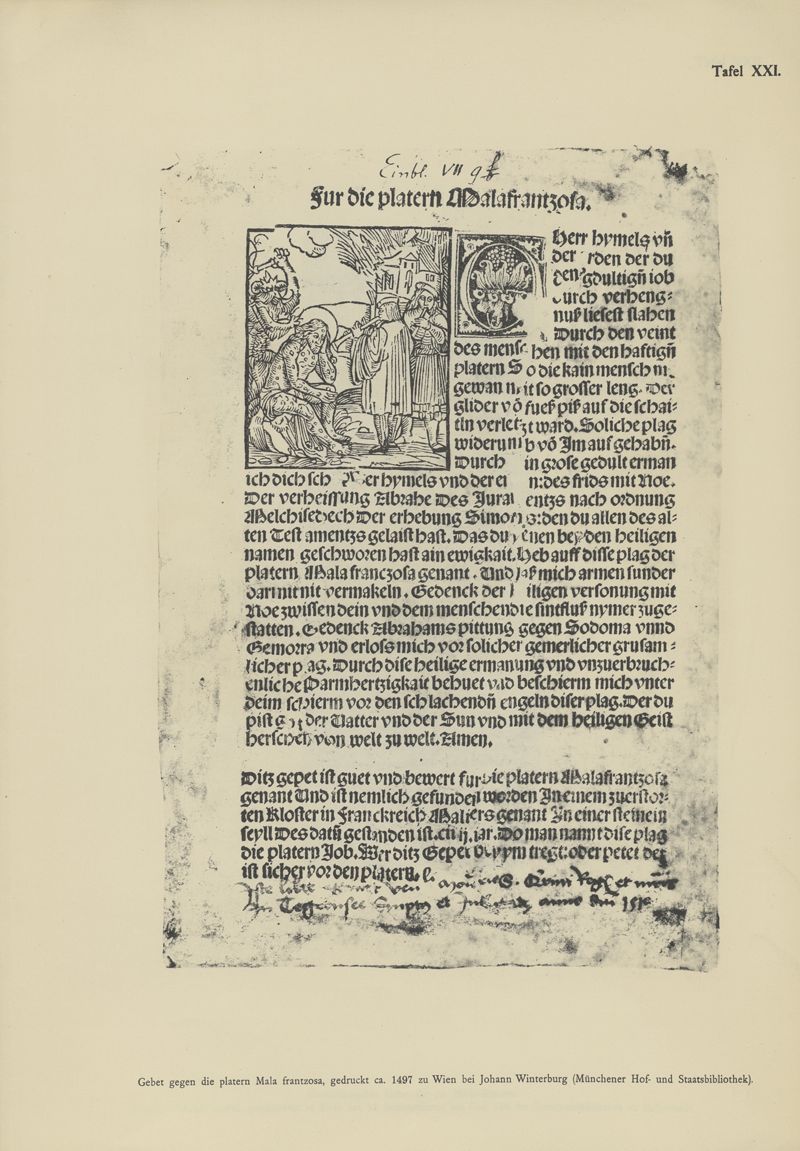 Tafel XXI.
Einbl. VII 9
Fur die platern Malafrantzosa.
Herr hymels vñ
der rden der du
den gdultigñ iob
urch verheng⸗
nuß liesest slahen
Durch den veint
des mens hen mit den haftigñ
platern So die kain mensch
gewan it so grosser leng. Der
glider võ fueß piß auf die schai⸗
tln verletzt ward. Soliche plag
widerumb võ Im auf gehabñ.
Durch in grose gedult erman
ich dich sch er hymels vnd der er n: des frids mit Noe.
Der verheissung Abrahe Des Jura entzs nach ordnung
Melchisedech Der erhebung Simon s: den du allen des al⸗
ten Testamentzs gelaist hast. Das du enen beyden heiligen
namen geschworen hast ain ewigkait. Heb auff disse plag der
platern Mala franczosa genant. Vnd laß mich armen sunder
darmit nit vermakeln. Gedenck der iligen versonung mit
Noe zwissen dein vnd dem menschen die sintfluß nymer zuge⸗
statten. Gedenck Abrahams pittung gegen Sodoma vnnd
Gemorra vnd erloss mich vor solicher gemerlicher grusam⸗
licher plag. Durch dise heilige ermanung vnd vnzuerbruch⸗
enliche Parmhertzigkait behuet vnd beschierm mich vnter
deim schierm vor den schlachendñ engeln diser plag. Der du
pist got der Vatter vnd der Sun vnd mit dem heiligen Geist
herschen von welt zu welt. Amen.
Ditz gepet ist guet vnd bewert fur die platern Malafrantzosa
genant Vnd ist nemlich gefunden worden In einem zuerstor⸗
ten Kloster in Franckreich Maliers genant In einer steinein
seyll Des datñ gestanden ist. cij. iar. Do man nannt dise plag
die platern Job. Wer ditz Gepet bey ym tregt: oder petet der
ist sicher vor den platern.
In Tegernsee anno
Gebet gegen die platern Mala frantzosa, gedruckt ca. 1497 zu Wien bei Johann Winterburg (Münchener Hof- und Staatsbibliothek).